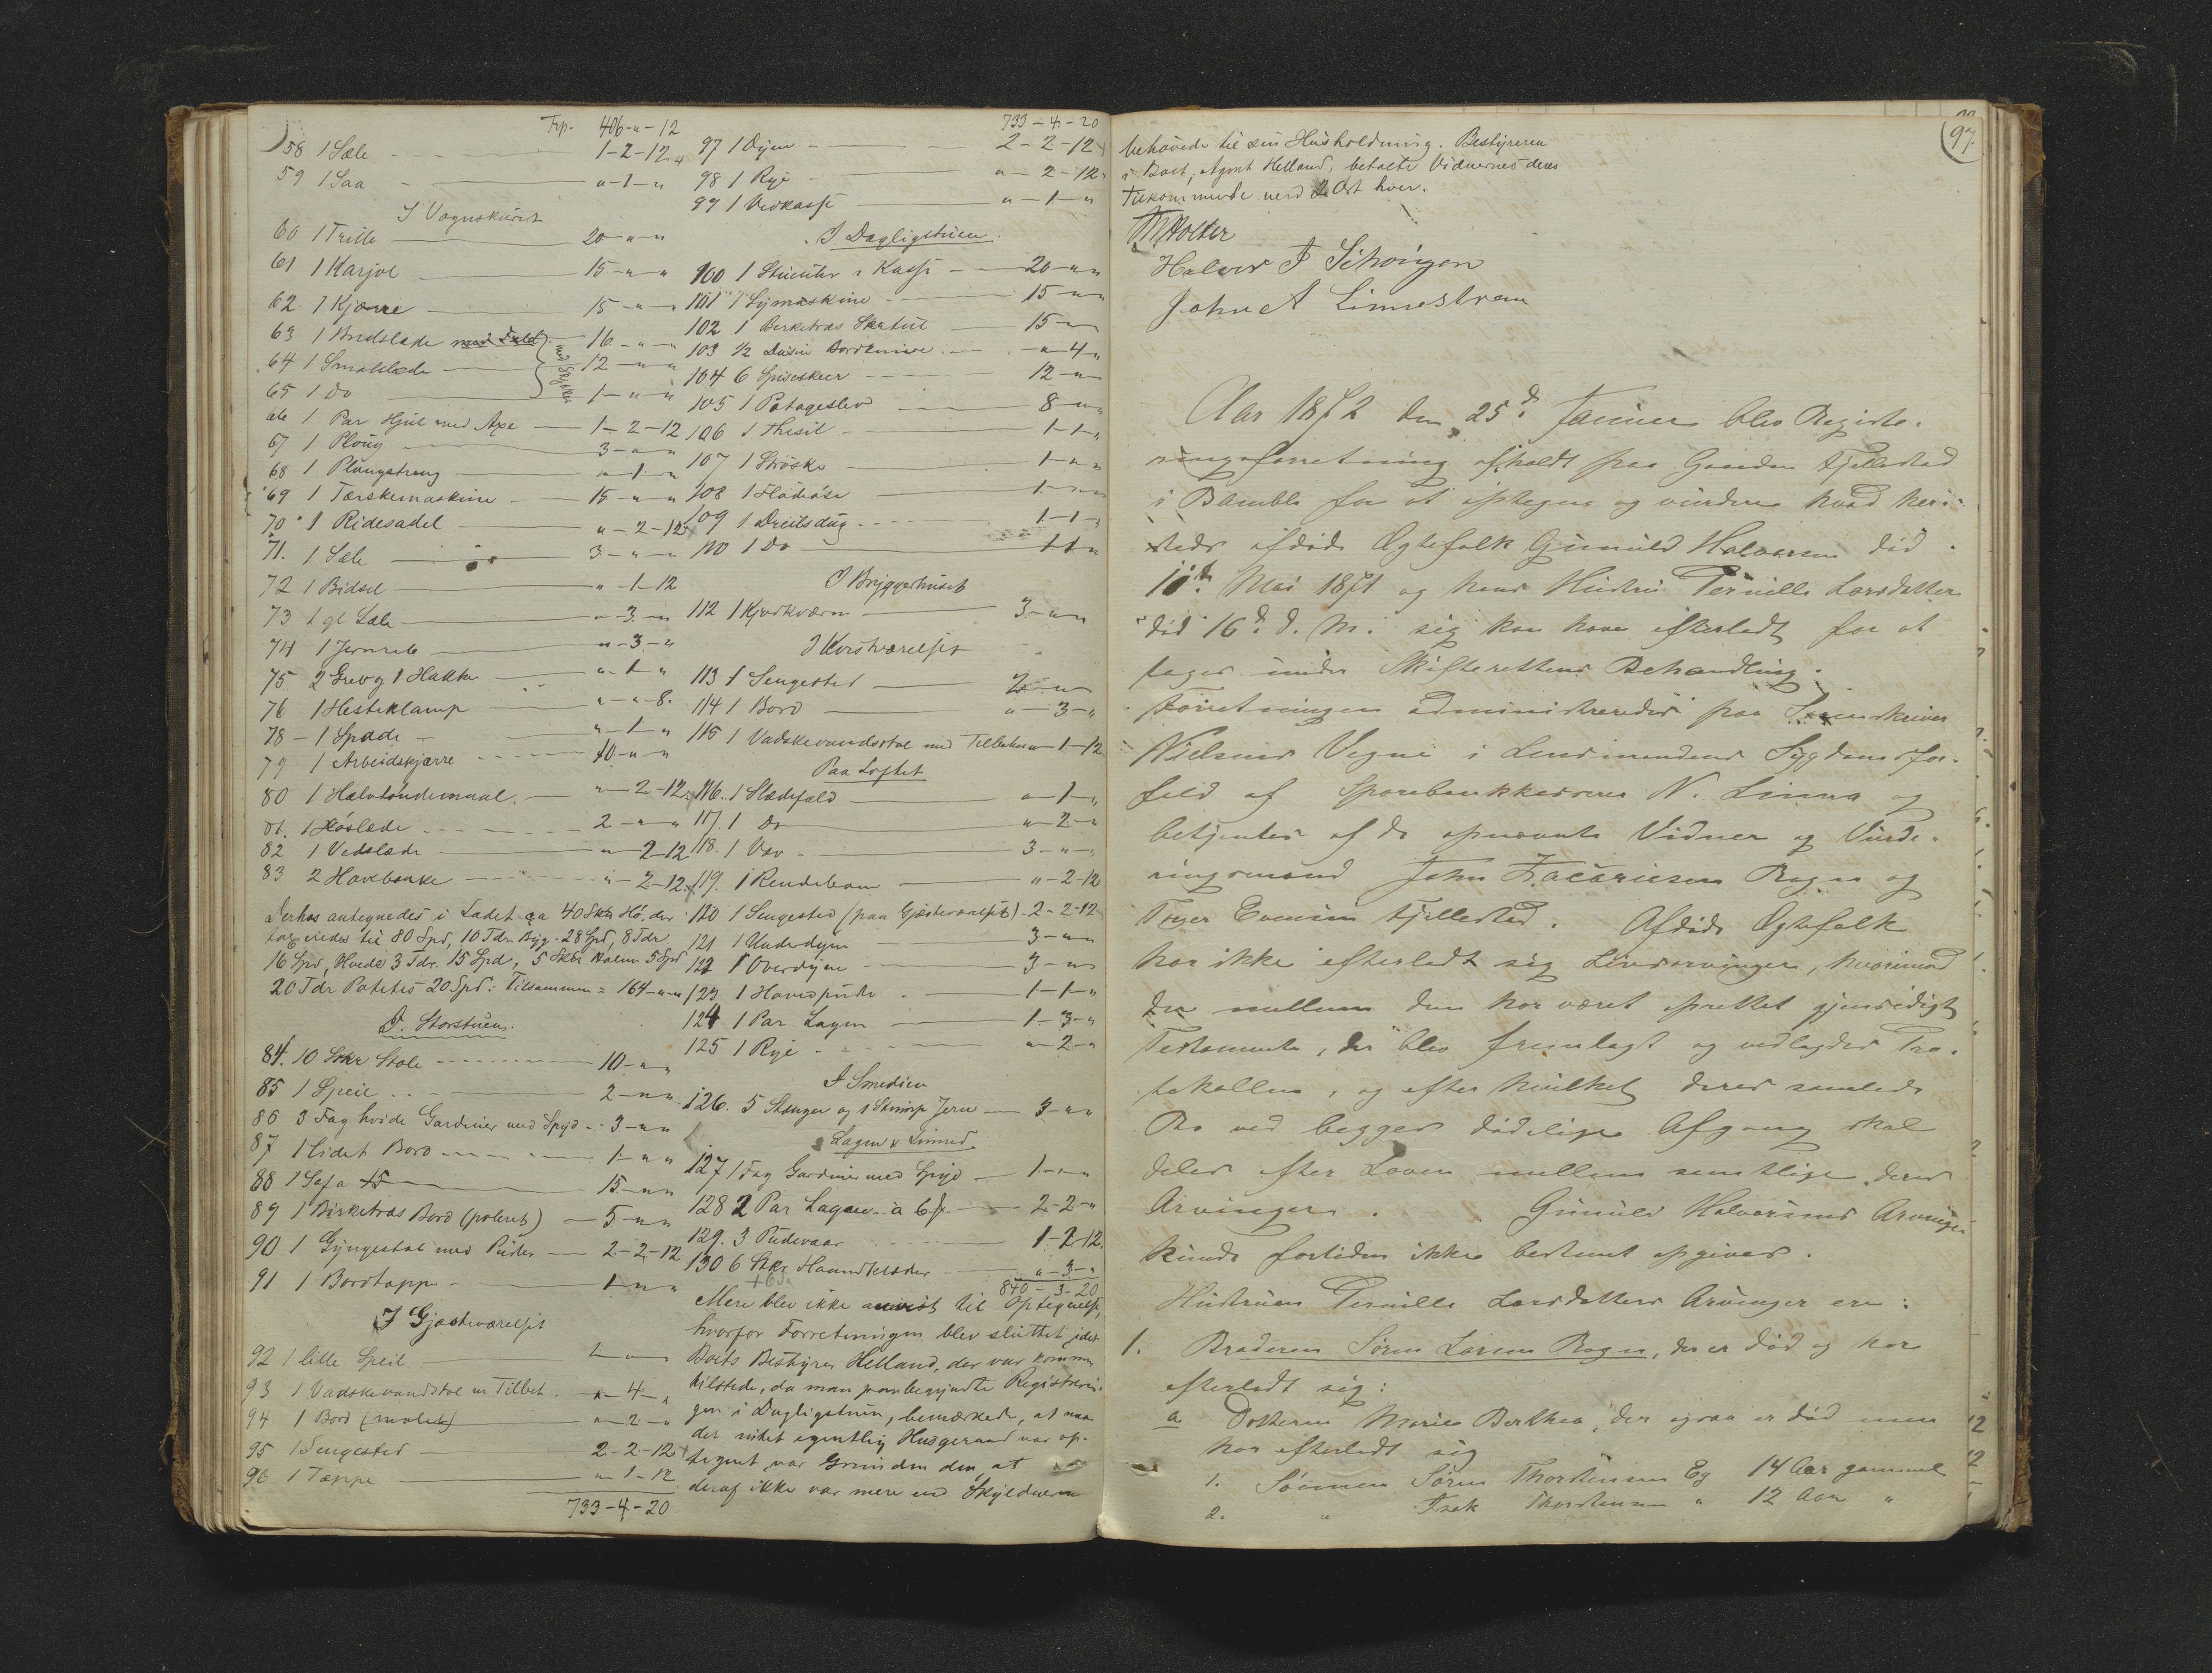 Trp. 406-"-12
58 1 Sæle - 1-2-12
59 1 Saa - "-1-"
I Vognskuret
60 1 Trille - 20-"-"
61 1 Karjol - 15-"-"
62 1 Kjærre - 15-"-"
63 1 Bredslæde med Feld - 16-"-"
64 1 Smalslæde - 12-"-"
65 1 Do - 1-"-"
66 1 Par Hjul med Axe - 1-2-12
67 1 Ploug - 3-"-"
68 1 Plougstreng - "-1-"
69 1 Tærskemaskine - 15-"-"
70 1 Ridesadel - "-2-12
71. 1 Sæle - 3-"-"
72 1 Bidsel - "-1-12
73 1 gl Sæle - "-3-"
74 1 - "-3-"
75 2 Grev og 1 Hakke - "-1-"
76 1 Hesteklamp - "-"-8.
78 - 1 Spade - "-1-"
79 1 Arbeidskjærre - 10-"-"
80 1 Halvtøndemaal. - "-2-12
81. 1 Høslæde - 2-"-"
82 1 Vedslæde - "-2-12
83 2 - "-2-12
Derhos antegnedes i Ladet ca 40 Skb Hø, der
til 80 Spd, 10 Tdr Byg - 28 Spd, 8 Tdr
16 Spd, Hvede 3 Tdr. 15 Spd, 5 Skb Halm 5 Spd
20 Tdr Potetes 20 Spd: Tilsammen = 164-"-"
I. Storstuen.
84. 10 Stkr Stole - 10-"-"
85 1 Speil - 2-"-"
86 3 Fag hvide Gardiner med Spyd - 3-"-"
87 1 lidet Bord - 1-"-"
88 1 Sofa 15 - 15-"-"
89 1 Birketræs Bord (poleret) - 5-"-"
90 1 Gyngestol med Puder - 2-2-12
91 1 Bordtæppe - 1-"-"
I Gjæsteværelset
92 1 lille Speil - 1-"-"
93 1 Vadskevandstol m Tilbeh. - "-4-"
94 1 Bord (malet) - "-2-"
95 1 Sengested - 2-2-12
96 1 Tæppe - "-1-12
733-4-20
733-4-20
97 1 Dyne - 2-2-12
98 1 Rye - "-2-12
99 1 Vedkasse - "-1-"
I Dagligstuen.
100 1 Stueuhr i Kasse - 20-"-"
101 1 Symaskine - 15-"-"
102 1 Berketræs Skatul - 15-"-"
103 ½ Dusin Bordknive - "-4-"
104 6 Spiseskeer - 12-"-"
105 1 Potageslev - 8-"-"
106 1 Thesil - 1-1-"
107 1 Strøske - 1-"-"
108 1 Flødeøse - 1-"-"
109 1 Dreilsdug - 1-1-"
110 1 Do - 1-1-"
I Bryggerhuset
112 1 Kjødkværn - 3-"-"
113 1 Sengested - 2-"-"
114 1 Bord - "-3-"
115 1 Vadskevandsstol med Tilbehør - "-1-12
Paa Loftet
116. 1 Slædefæld - "-1-"
117. 1 Do - "-2-"
118. 1 Væv - 3-"-"
119. 1 Rendebom - "-2-12
120 1 Sengested (paa Gjæsteværelset) - 2-2-12
121 1 Underdyne - 3-"-"
122 1 Overdyne - 3-"-"
123 1 Hovedpude - 1-1-"
124 1 Par Lagen - 1-3-"
125 1 Rye - "-2-"
I Smedien
126. 5 Stænger og 1 Stump Jern - 3-"-"
Lagen & Linned.
127 1 Fag Gardiner med Spyd - 1-"-"
128 2 Par Lagen à 6 - 2-2-"
129. 3 Pudevaar - 1-2-12.
130 6 Stkr Haandklæder - "-3-"
840-3-20
Mere blev ikke anvist til Optegnelse,
hvorfor Forretningen blev sluttet, idet
Boets Bestyrer Helland, der var kommen
tilstede, da man paabegyndte Registrerin-
gen i Dagligstuen, bemærkede, at naar
der intet egentlig Husgeraad var op-
tegnet var Grunden den, at
deraf ikke var mere end Skyldneren
97.
behøvede til sin Husholdning. Bestyreren
i Boet, Agent Helland, betalte Vidnernes deres
Tilkommende med 2 Ort hver.
M Holter
Halvor J
John A Linnestrøm
Aar 1872 den 25d. Januar blev Registe-
ringsforretning afholdt paa Gaarden Fjellestad
i Bamble for at optegne og vurdere hvad her-
steds afdøde Ægtefolk Gunuld Halvorsen død
10d. Mai 1871 og hans Hustru Pernille Larsdatter
død 16d. d. M. sig kan have efterladt for at
tages under Skifterettens Behandling.
Forretningen administreredes paa Sorenskriver
Nielsens Vegne i Lensmandens Sygdomsfor-
fald af Sparebankkasserer N. Linna og
betjentes af de opnævnte Vidner og Vurde-
ringsmænd John Zacariesen Rogn og
Evensen Fjellestad. Afdøde Ægtefolk
har ikke efterladt sig Livsarvinger, hvorimod
der mellem dem har været oprettet gjensidigt
Testamente, der blev fremlagt og vedlagdes Pro-
tokollen, og efter hvilket deres samlede
Bo ved begges dødelige Afgang skal
deles efter Loven mellem samtlige deres
Arvinger. Gunuld Halvorsens Arvinger
kunde fortiden ikke bestemt opgives.
Hustruen Pernille Larsdatters Arvinger ere:
1. Broderen Søren Larsen Rogn, der er død og har
efterladt sig:
a Datteren Maria Berthea, der ogsaa er død men
har efterladt sig
1. Sønnen Søren Thorstensen Eg 14 Aar gammel
2. " Isak Thorstensen " 12 Aar "